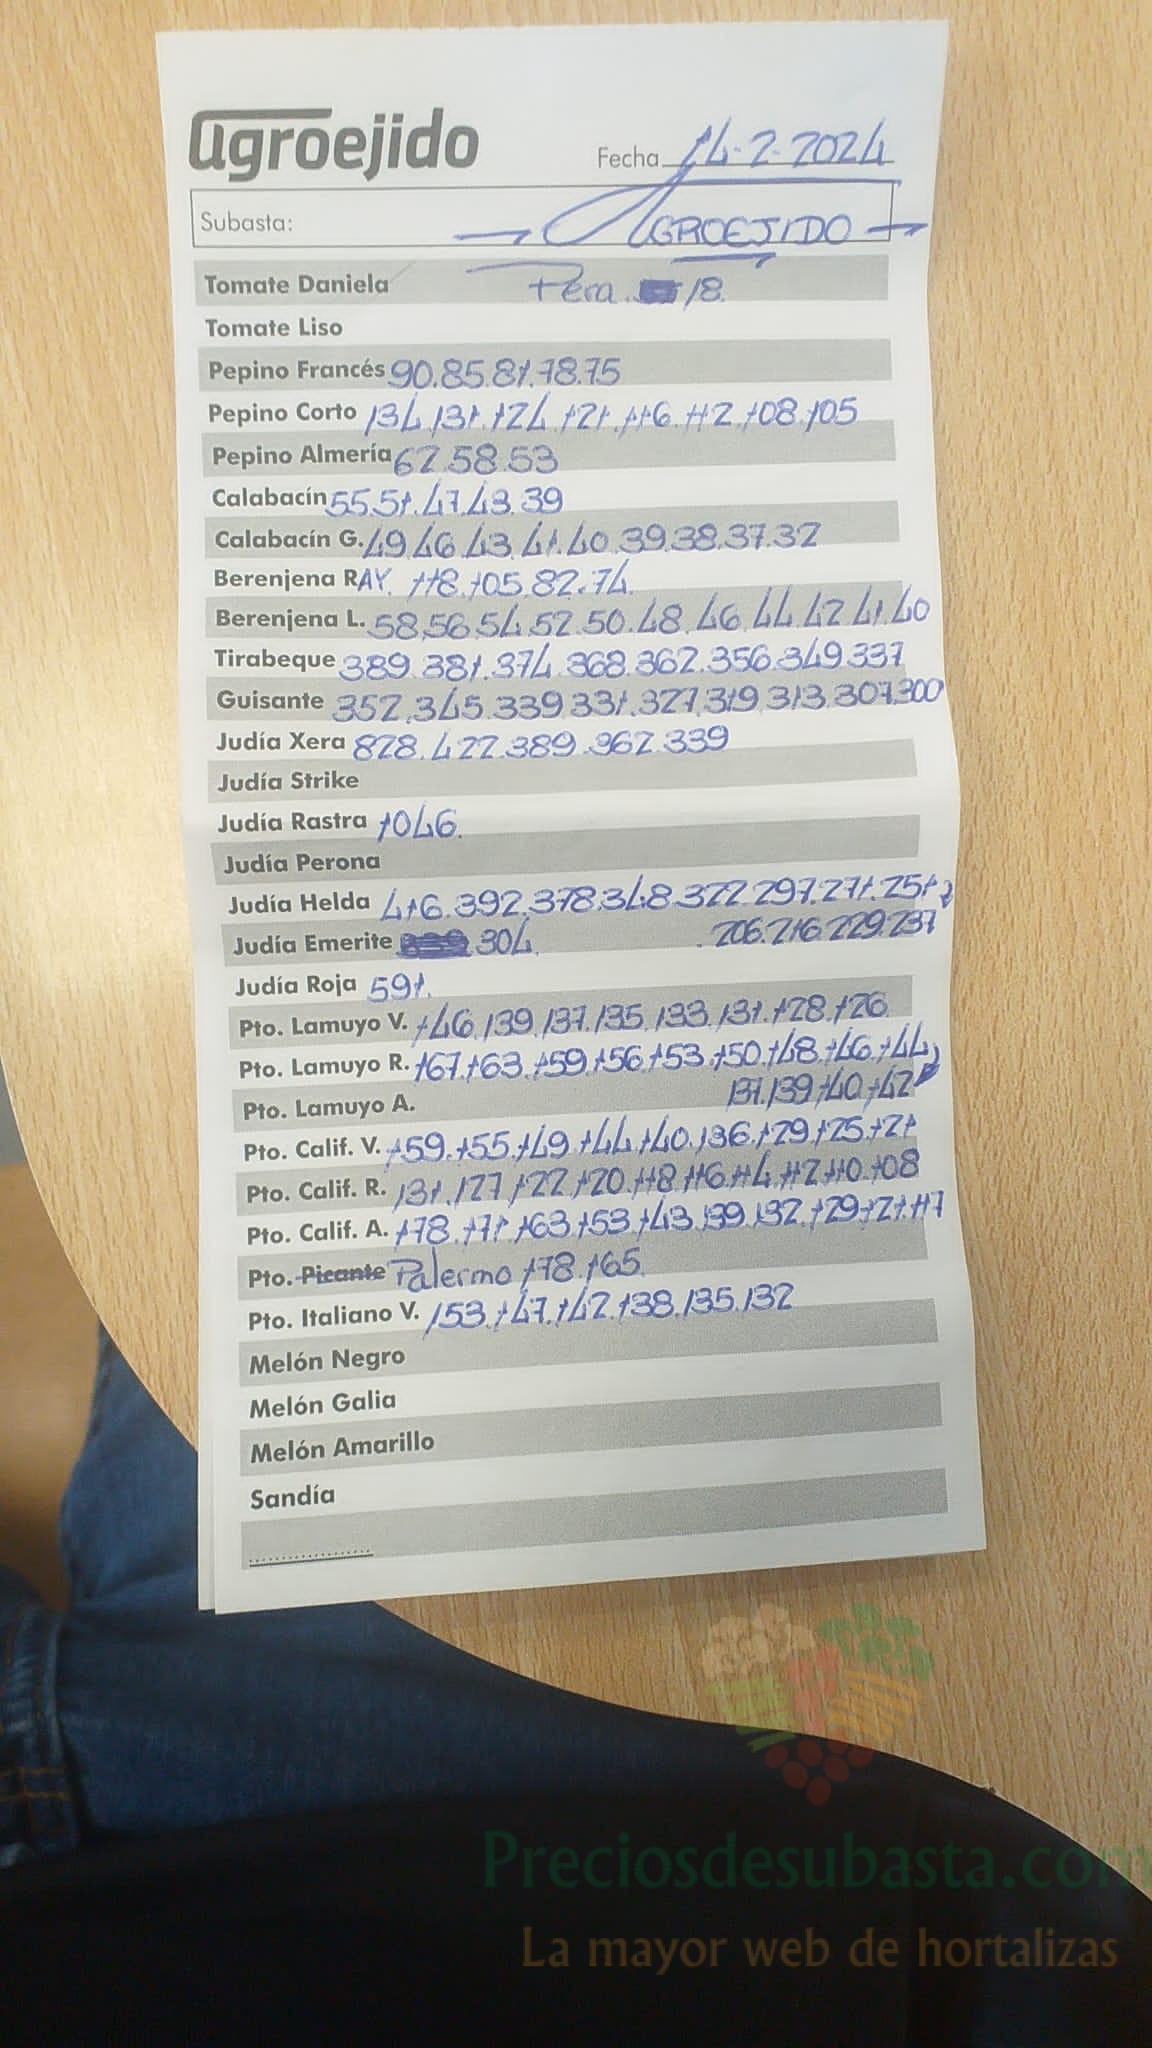 agroejido
Fecha 14-2-2024
Subasta: → AGROEJIDO →
Tomate Daniela Pera. 18.
Tomate Liso
Pepino Francés 90.85.81.78.75
Pepino Corto 134.131.124.121.116.112.108.105
Pepino Almería 62.58.53
Calabacín 55.51.47.43.39
Calabacín G. 49.46.43.41.40.39.38.37.32
Berenjena RAY. 118.105.82.74.
Berenjena L. 58.56.54.52.50.48.46.44.42.41.40
Tirabeque 389.381.374.368.362.356.349.337
Guisante 352.345.339.331.327.319.313.307.300
Judía Xera 828.422.389.362.339
Judía Strike
Judía Rastra 1046.
Judía Perona
Judía Helda 416.392.378.348.322.297.271.251
206.216.229.237
Judía Emerite 304.
Judía Roja 591.
Pto. Lamuyo V. 146.139.137.135.133.131.128.126
Pto. Lamuyo R. 167.163.159.156.153.150.148.146.144
137.139.140.142
Pto. Lamuyo A.
Pto. Calif. V. 159.155.149.144.140.136.129.125.121
Pto. Calif. R. 131.127.122.120.118.116.114.112.110.108
Pto. Calif. A. 178.171.163.153.143.139.132.129.121.117
Pto. Picante Palermo 178.165.
Pto. Italiano V. 153.147.142.138.135.132
Melón Negro
Melón Galia
Melón Amarillo
Sandía
Preciosdesubasta.com
La mayor web de hortalizas